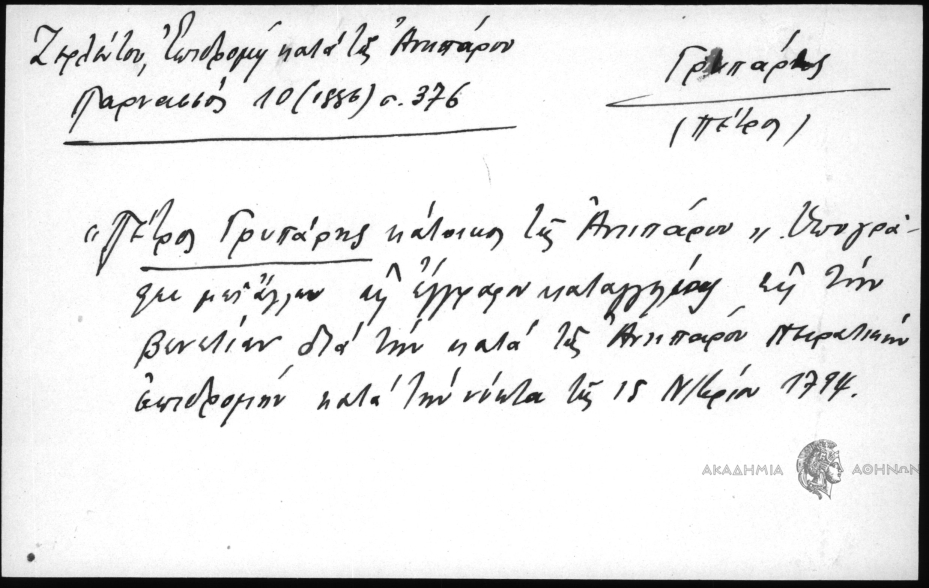 Ζερλέντου, Ἐπιδρομή κατά τῆς Ἀντιπάρου
Παρνασσός 10 (1886) σ. 376
Γρυπάρης
(Πέτρος)
"Πέτρος Γρυπάρης κάτοικος τῆς Ἀντιπάρου" Ὑπογρά-
φει μετ' ἄλλων εἰς ἔγγραφον καταγγελίας εἰς τήν
Βενετίαν διά τήν κατά τῆς Ἀντιπάρου πειρατικήν
ἐπιδρομήν κατά τήν νύκτα τῆς 15 Ν/βρίου 1794.
ΑΚΑΔΗΜΙΑ ΑΘΗΝΩΝ